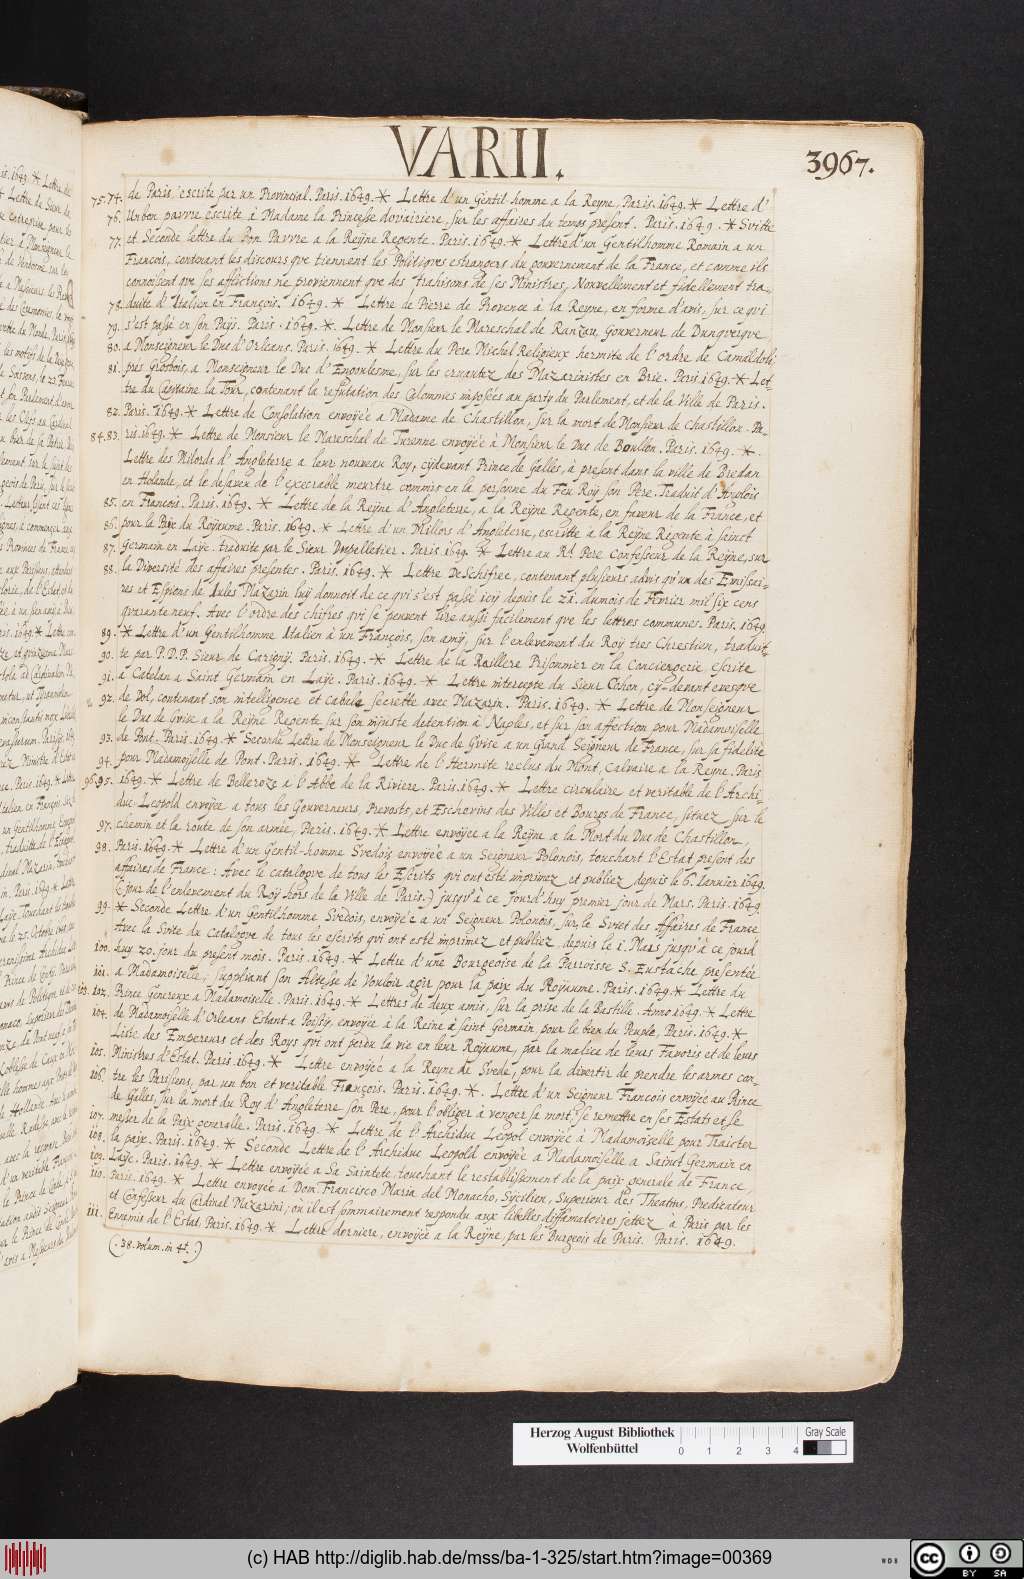 VARII.
3967.
75. 74. de Paris, escrite par un Provincial. Paris. 1649. * Lettre d'un Gentil-homme a la Reyne. Paris. 1649. * Lettre d'
76. Un bon pauvre escrite à Madame la Princesse dovairiere, sur les affaires du temps present. Paris. 1649. * Svitte
77. et Seconde lettre du Bon Pavvre a la Reÿne Regente. Paris. 1649. * Lettre d'un Gentilhomme Romain a un
Francois, contenant les discours qve tiennent les Politiqves estrangers du gouvernement de la France, et comme ils
connoissent qve ses afflictions ne proviennent qve des trahisons de ses Ministres, Nouvellement et fidellement tra-
78. duite d'Italien en François. 1649. * Lettre de Pierre de Provence à la Reyne, en forme d'avis, sur ce qvi
79. s'est passé en son Païjs. Paris. 1649. * Lettre de Monsieur le Mareschal de Ranzau, Gouverneur de Dunqverqve
80. a Monseigneur le Duc d'Orleans. Paris. 1649. * Lettre du Pere Michel Religieux hermite de l'ordre de Camaldoli
81. prés Grosbois, a Monseigneur le Duc d'Engoulesme, sur les cruautez des Mazarinistes en Brie. Paris. 1649. * Let
tre du Capitaine la Tour, contenant la refutation des Calomnies imposées au party du Parlement, et de la Ville de Paris.
82. Paris. 1649. * Lettre de Consolation envoyée a Madame de Chastillon, sur la mort de Monsieur de Chastillon. Pa-
84. 83. ris. 1649. * Lettre de Monsieur le Mareschal de Turenne envoyée à Monsieur le Duc de Boullon. Paris. 1649. *.
Lettre des Milords d'Angleterre a leur nouveau Roy, cÿdevant Prince de Galles, à present dans la ville de Bredan
en Holande, et le desaveu de l'execrable meurtre commis en la personne du Feu Roÿ son Pere. Traduit d'Anglois
85. en Francois. Paris. 1649. * Lettre de la Reÿne d'Angleterre, a la Reÿne Regente, en faveur de la France, et
86. pour la Paix du Royaume. Paris. 1649. * Lettre d'un Milors d'Angleterre, escritte à la Reÿne Regente à sainct
87. Germain en Laÿe. traduite par le Sieur Dupelletier. Paris. 1649. * Lettre au R.d Pere Confesseur de la Reÿne, sur
88. la Diversité des affaires presentes. Paris. 1649. * Lettre DeSchifree, contenant plusieurs advis qu'un des Emissai-
res et Espions de Iules Mazarin luÿ donnoit de ce qvi s'est passé icy depuis le 21. du mois de Fevrier mil six cens
qvarante neuf. Avec l'ordre des chifres qvi se peuvent lire aussi facilement qve les lettres communes. Paris. 1649.
89. * Lettre d'un Gentilhomme Italien à un François, son amÿ, sur l'enlevement du Roÿ tres Chrestien, traduit-
90. te par P.D.P. Sieur de Carignÿ. Paris. 1649. * Lettre de la Raillere Prisonnier en la Conciergerie, escrite
91. a Catelan a Saint Germain en Laÿe. Paris. 1649. * Lettre intercepte du Sieur Cohon, cÿ-devant evesque
92. de Dol, contenant son intelligence et cabale secrette avec Mazarin. Paris. 1649. * Lettre de Monseigneur
le Duc de Gvise a la Reÿne Regente sur son injuste detention à Naples, et sur son affection pour Madamoiselle
93. de Pont. Paris. 1649. * Seconde Lettre de Monseigneur le Duc de Gvise a un Grand Seigneur de France, sur sa fidelité
94. pour Madamoiselle de Pont. Paris. 1649. * Lettre de l'Hermite reclus du Mont calvaire a la Reyne. Paris
96. 95. 1649. * Lettre de Belleroze a l'Abbé de la Riviere. Paris. 1649. * Lettre circulaire et veritable de l'Archi-
duc Leopold envoyée a tous les Gouverneurs, Prevosts, et Eschevins des Villes et Bourgs de France, sitnez sur le
97. chemin et la route de son armée, Paris. 1649. * Lettre envoyée a la Reÿne a la Mort du Duc de Chastillon,
98. Paris. 1649. * Lettre d'un Gentil-homme Svedois envoyée a un Seigneur Polonois, touchant l'Estat present des
affaires de France: Avec le catalogve de tous les Escrits qvi ont esté imprimez et publiez depuis le 6. Ianvier 1649.
(jour de l'enlevement du Roÿ hors de la Ville de Paris.) jusqv'à ce jourd'huy premier jour de Mars. Paris. 1649
99. * Seconde Lettre d'un Gentilhomme Svedois, envoyée a un Seigneur Polonois, sur le Svjet des Affaires de France
Avec la Suite du catalogve de tous les escrits qvi ont esté imprimez et publiez, depuis le 1. Mars jusqv'à ce jourd
100. huy 20. jour du present mois. Paris. 1649. * Lettre d'une Bourgeoise de la Parroisse S. Eustache presentée
101. a Madamoiselle, suppliant son Altesse de Vouloir agir pour la paix du Roÿaume. Paris. 1649. * Lettre du
103. 102. Prince Genereux a Madamoiselle. Paris. 1649. * Lettres de deux amis, sur la prise de la Bastille. Anno 1649. * Lettre
104. de Madamoiselle d'Orleans Estant a Poissÿ, envoyée à la Reine a saint Germain pour le bien du Peuple. Paris. 1649. *
Liste des Empereurs et des Roys qvi ont perdu la vie en leur Royaume, par la malice de leurs Favoris et de leurs
105. Ministres d'Estat. Paris. 1649. * Lettre envoyée a la Reyne de Svede, pour la divertir de prendre les armes con-
106. tre les Parisiens, par un bon et veritable François. Paris. 1649. *. Lettre d'un Seigneur Francois envoyée au Prince
de Galles, sur la mort du Roy d'Angleterre son Pere, pour l'obliger à venger sa mort, se remettre en ses Estats et se
107. mesler de la Paix generalle. Paris. 1649. * Lettre de l'Archiduc Leopol envoyée à Madamoiselle pour Traicter
108. la paix. Paris. 1649. * Seconde Lettre de l'Archiduc Leopold envoyée a Madamoiselle a Sainct Germain en
109. Laÿe. Paris. 1649. * Lettre envoyée a Sa Sainteté, touchant le restablissement de la paix generale de France,
110. Paris. 1649. * Lettre envoyée a Dom Francisco Maria del Monacho, Sÿcilien, Superieur des Theatins, Predicateur
et Confesseur du Cardinal Mazarini; ou il est sommairement respondu aux libelles diffamatoires jettez a Paris par les
111. Ennemis de l'Estat. Paris. 1649. * Lettre derniere, envoyée a la Reÿne, par les Burgeois de Paris. Paris. 1649.
(. 38. volum. in 4t.)
Herzog August Bibliothek
Wolfenbüttel
0 1 2 3 4
Gray Scale
(c) HAB http://diglib.hab.de/mss/ba-1-325/start.htm?image=00369
WDB
cc BY SA